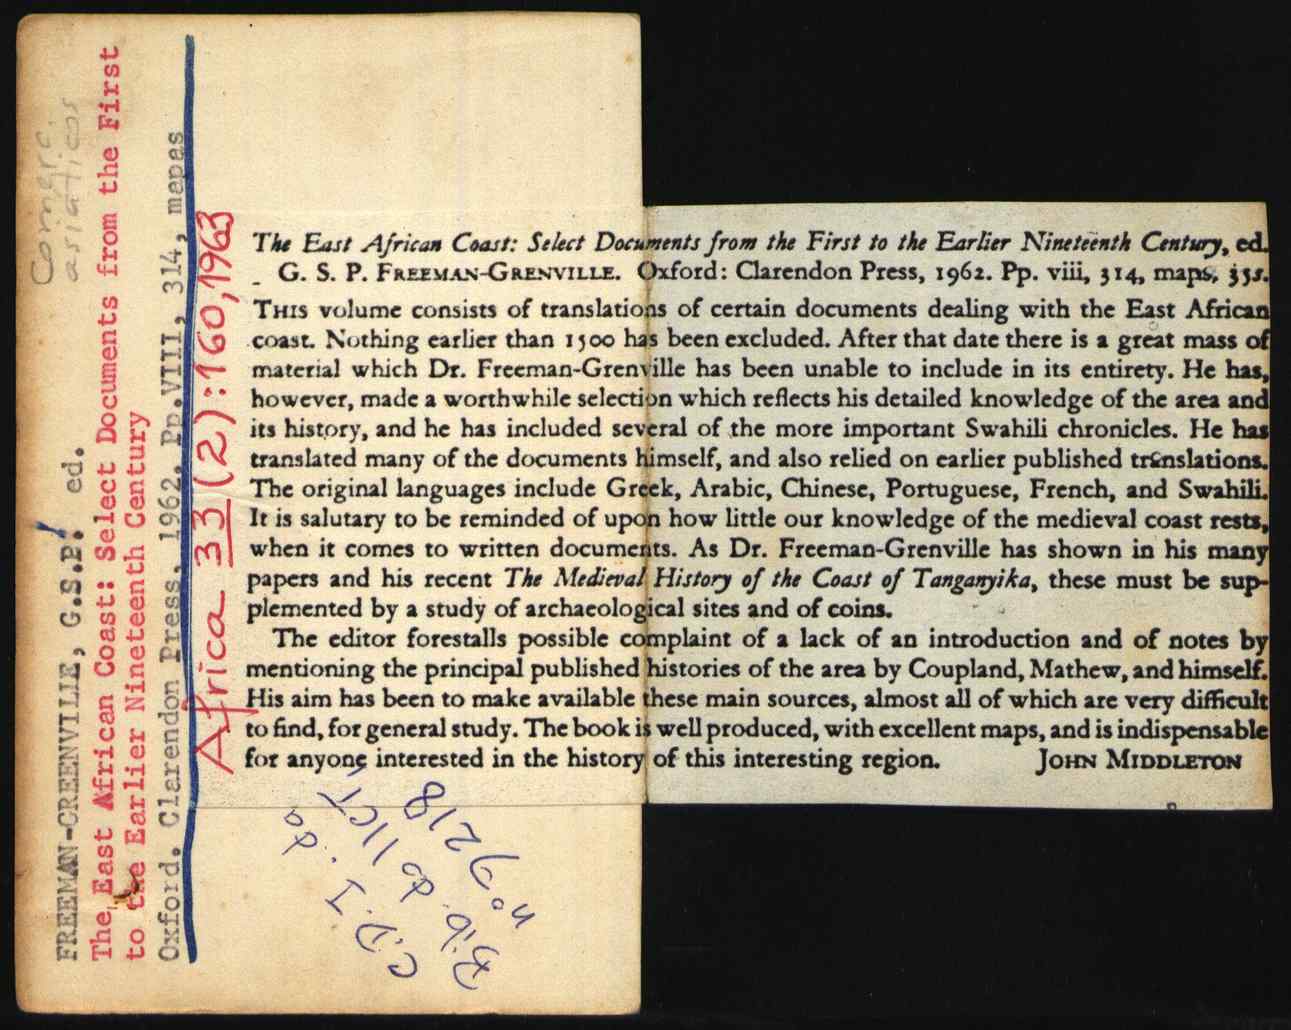 Comérc.
asiáticos
FREEMAN-GREENVILLE, G.S.P. ed.
The East African Coast: Select Documents from the First
to the Earlier Nineteenth Century
Oxford. Clarendon Press, 1962. Pp.VIII, 314, mapas
Africa 33 (2):160,1963
The East African Coast: Select Documents from the First to the Earlier Nineteenth Century, ed.
G. S. P. FREEMAN-GRENVILLE. Oxford: Clarendon Press, 1962. Pp. viii, 314, maps. 35s.
THIS volume consists of translations of certain documents dealing with the East African
coast. Nothing earlier than 1500 has been excluded. After that date there is a great mass of
material which Dr. Freeman-Grenville has been unable to include in its entirety. He has,
however, made a worthwhile selection which reflects his detailed knowledge of the area and
its history, and he has included several of the more important Swahili chronicles. He has
translated many of the documents himself, and also relied on earlier published translations.
The original languages include Greek, Arabic, Chinese, Portuguese, French, and Swahili.
It is salutary to be reminded of upon how little our knowledge of the medieval coast rests,
when it comes to written documents. As Dr. Freeman-Grenville has shown in his many
papers and his recent The Medieval History of the Coast of Tanganyika, these must be sup-
plemented by a study of archaeological sites and of coins.
The editor forestalls possible complaint of a lack of an introduction and of notes by
mentioning the principal published histories of the area by Coupland, Mathew, and himself.
His aim has been to make available these main sources, almost all of which are very difficult
to find, for general study. The book is well produced, with excellent maps, and is indispensable
for anyone interested in the history of this interesting region. JOHN MIDDLETON
C.D.I. da
Bib. do IICT,
nº 9218